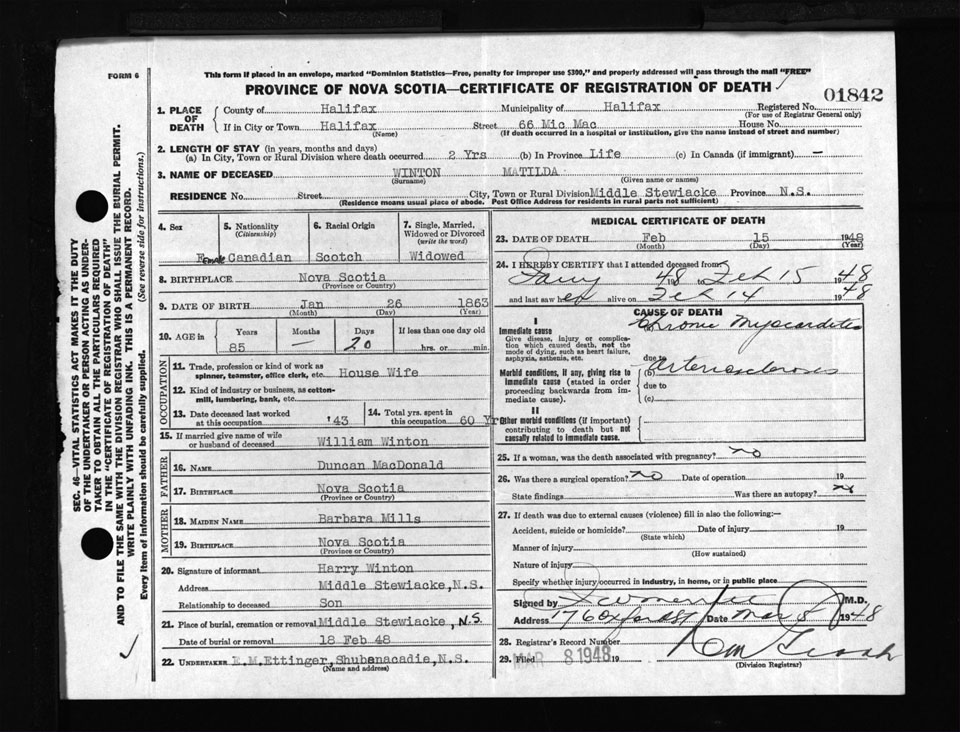 FORM 6
This form if placed in an envelope, marked "Dominion Statistics—Free, penalty for improper use $300," and properly addressed will pass through the mail "FREE"
PROVINCE OF NOVA SCOTIA—CERTIFICATE OF REGISTRATION OF DEATH
01842
1. PLACE OF DEATH
County of Halifax Municipality of Halifax Registered No.
(For use of Registrar General only)
If in City or Town Halifax Street 66 Mic Mac House No.
(Name) (If death occurred in a hospital or institution, give the name instead of street and number)
2. LENGTH OF STAY (in years, months and days)
(a) In City, Town or Rural Division where death occurred 2 Yrs (b) In Province Life (c) In Canada (if immigrant) —
3. NAME OF DECEASED WINTON MATILDA
(Surname) (Given name or names)
RESIDENCE No. Street City, Town or Rural Division Middle Stewiacke Province N.S.
(Residence means usual place of abode. Post Office Address for residents in rural parts not sufficient)
4. Sex
Female
5. Nationality
(Citizenship)
Canadian
6. Racial Origin
Scotch
7. Single, Married, Widowed or Divorced
(write the word)
Widowed
8. BIRTHPLACE Nova Scotia
(Province or Country)
9. DATE OF BIRTH Jan 26 1863
(Month) (Day) (Year)
10. AGE in
Years Months Days If less than one day old
85 — 20 hrs. or min.
OCCUPATION
11. Trade, profession or kind of work as spinner, teamster, office clerk, etc. House Wife
12. Kind of industry or business, as cotton-mill, lumbering, bank, etc.
13. Date deceased last worked at this occupation '43
14. Total yrs. spent in this occupation 60 Yrs
15. If married give name of wife or husband of deceased William Winton
FATHER
16. NAME Duncan MacDonald
17. BIRTHPLACE Nova Scotia
(Province or Country)
MOTHER
18. MAIDEN NAME Barbara Mills
19. BIRTHPLACE Nova Scotia
(Province or Country)
20. Signature of informant Harry Winton
Address Middle Stewiacke, N.S.
Relationship to deceased Son
21. Place of burial, cremation or removal Middle Stewiacke, N.S.
Date of burial or removal 18 Feb 48
22. UNDERTAKER E.M.Ettinger, Shubenacadie, N.S.
(Name and address)
MEDICAL CERTIFICATE OF DEATH
23. DATE OF DEATH Feb 15 1948
(Month) (Day) (Year)
24. I HEREBY CERTIFY that I attended deceased from
48 to Feb 15 1948
and last saw her alive on Feb 14 1948
CAUSE OF DEATH
I
Immediate cause
Give disease, injury or complication which caused death, not the mode of dying, such as heart failure, asphyxia, asthenia, etc.
Chronic Myocarditis
due to
Morbid conditions, if any, giving rise to immediate cause (stated in order proceeding backwards from immediate cause).
(b) Arteriosclerosis
due to
(c)
II
Other morbid conditions (if important) contributing to death but not causally related to immediate cause.
25. If a woman, was the death associated with pregnancy? no
26. Was there a surgical operation? no Date of operation 19
State findings Was there an autopsy? no
27. If death was due to external causes (violence) fill in also the following:—
Accident, suicide or homicide? Date of injury 19
(State which)
Manner of injury
(How sustained)
Nature of injury
Specify whether injury occurred in industry, in home, or in public place
Signed by M.D.
Address 76 Oxford St Date Mar 8 1948
28. Registrar's Record Number
29. Filed MAR 8 1948 19
(Division Registrar)
SEC. 46—VITAL STATISTICS ACT MAKES IT THE DUTY
OF THE UNDERTAKER OR PERSON ACTING AS UNDER-
TAKER TO OBTAIN ALL THE PARTICULARS REQUIRED
IN THE "CERTIFICATE OF REGISTRATION OF DEATH"
AND TO FILE THE SAME WITH THE DIVISION REGISTRAR WHO SHALL ISSUE THE BURIAL PERMIT.
WRITE PLAINLY WITH UNFADING INK. THIS IS A PERMANENT RECORD.
Every item of information should be carefully supplied. (See reverse side for instructions.)